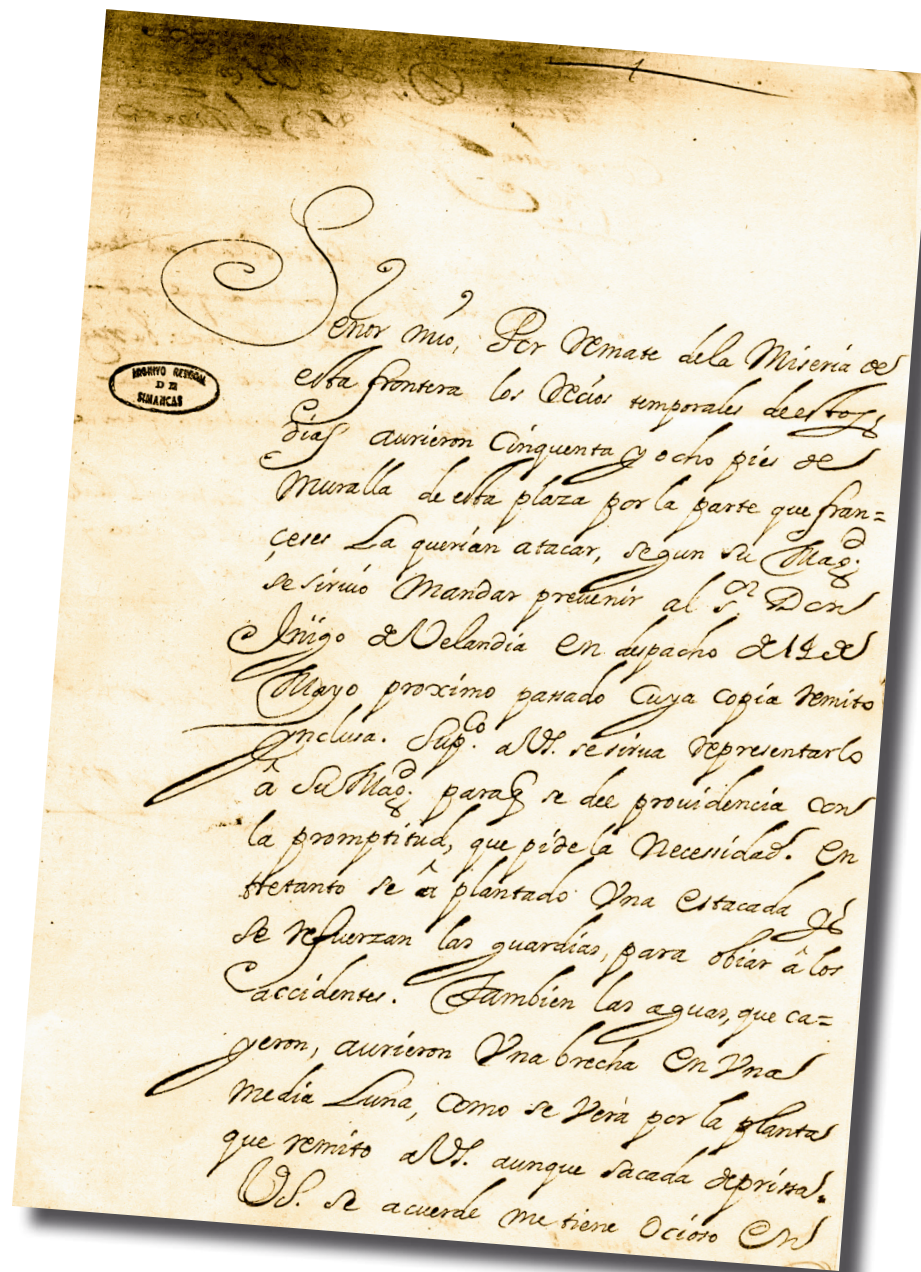 1
Señor mio, Por remate dela Miseria de
esta frontera los Recios temporales de estos
dias aurieron Cinquenta y ocho pies de
Muralla de esta plaza por la parte que fran=
çeses La querian atacar, segun su Magd.
se siruió Mandar preuenir al Sr. Don
Iñigo de Velandia en despacho de 19 de
Mayo proximo passado Cuya copia remito
ynclusa. Supco. a VS. se sirua representarlo
â Su Magd. paraq se dee prouidencia con
la promptitud, que pide la Necessidad. En
tretanto se â plantado Vna estacada y
se refuerzan las guardias, para obiar â los
accidentes. Tambien las aguas, que ca=
yeron, aurieron Vna brecha en Vna
media Luna, como se Verá por la planta
que remito a VS. aunque sacada deprissa.
VS. se acuerde me tiene Ocioso en
ARCHIVO GENERAL
DE
SIMANCAS